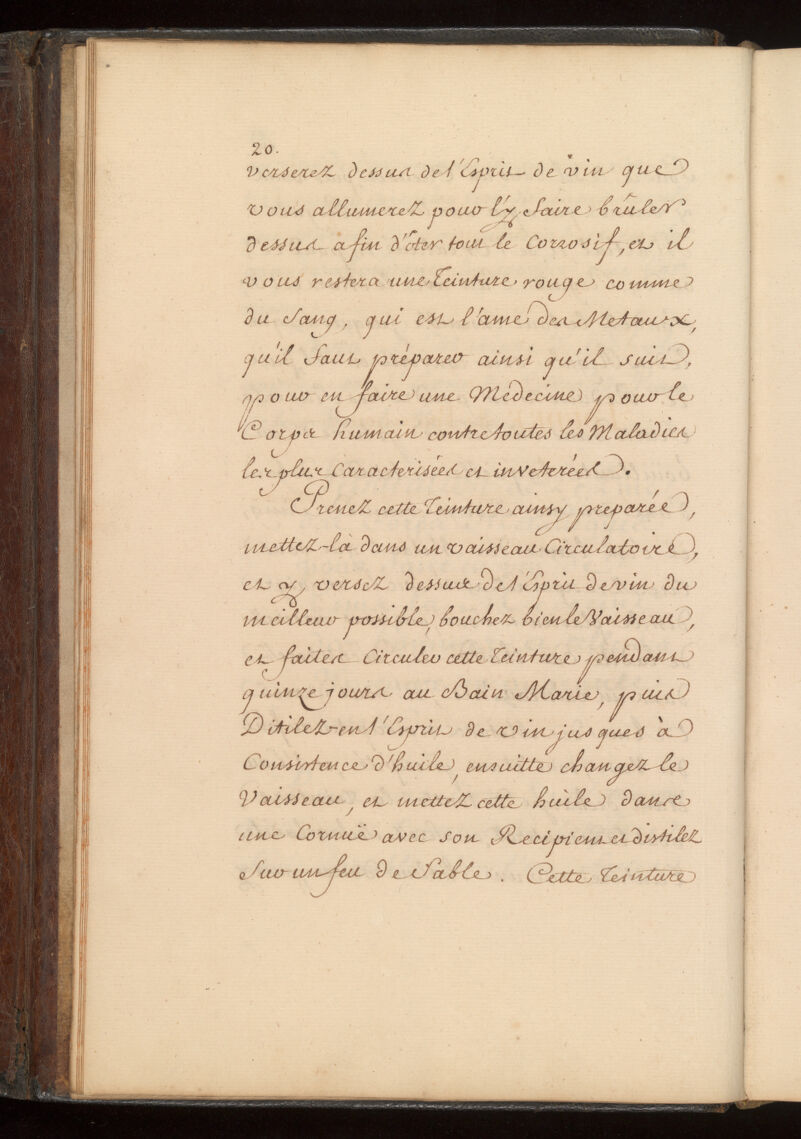 20.
verserez dessus de l'Esprit de vin que
vous allumerez pour l'y faire brûler
dessus afin d'ôter tout le Corrosif, et il
vous restera une Teinture rouge comme
du Sang, qui est l'ame des Metaux,
qu'il faut préparer ainsi qu'il suit,
pour en faire une Médecine pour le
Corps humain contre toutes les Maladies
les plus Caracterisées et inveterées.
Prenez cette Teinture ainsy preparée,
mettez-là dans un vaisseau Circulatoire,
et y versez dessus de l'Esprit de vin du
meilleur possible, bouchez bien le Vaisseau,
et faites Circuler cette Teinture pendant
quinze jours au Bain Marie, puis
Ditilez-en l'Esprit de vin jusques à
Consistence d'huile, ensuitte changez le
Vaisseau, et mettez cette huile dans
une Cornuë avec son Recipient et distilez
Sur un feu de Sable. Cette Teinture